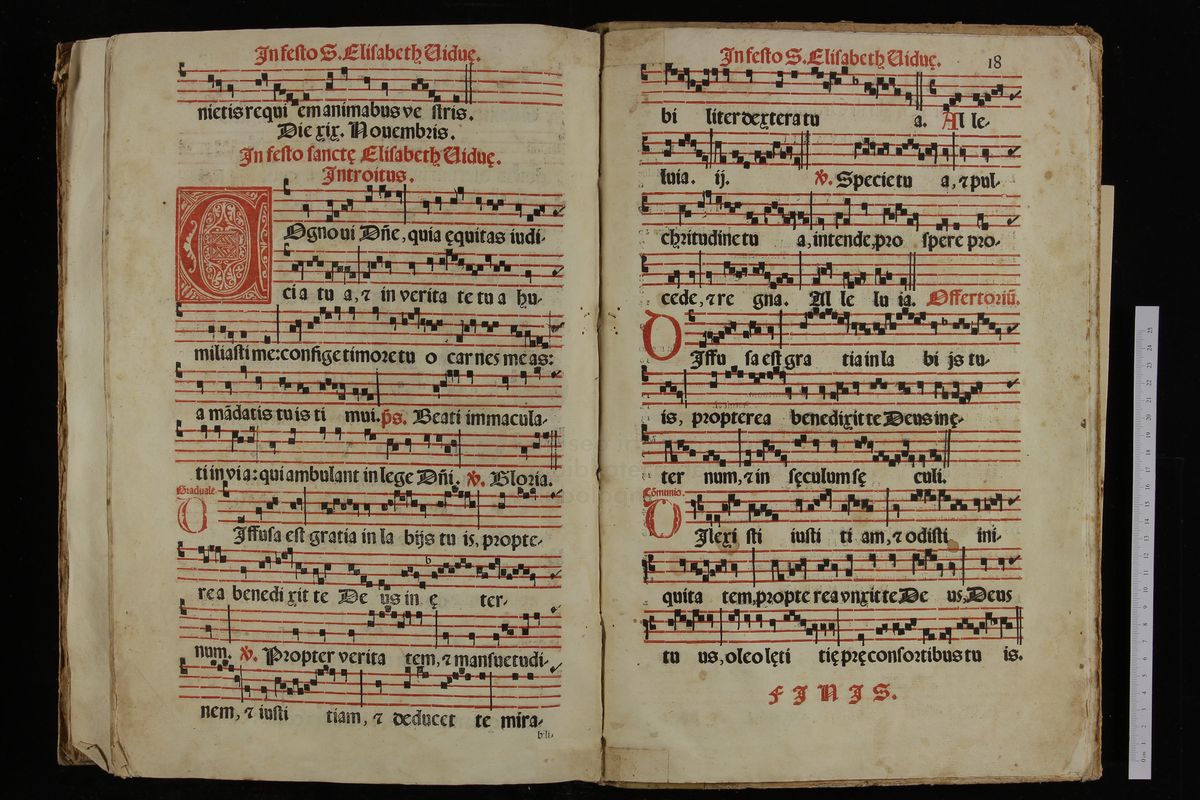 In festo S. Elisabeth Uiduę.
nietis requi em animabus ve stris.
Die xix. Nouembris.
In festo sanctę Elisabeth Uiduę.
Introitus.
COgnoui Dñe, quia ęquitas iudi-
cia tua, ⁊ in verita te tu a hu-
miliasti me: confige timore tu o carnes me as:
a mādatis tu is ti mui. p̄s. Beati immacula-
ti in via: qui ambulant in lege Dñi. ℣. Gloria.
Graduale.
DIffusa est gratia in la bijs tu is, propte-
rea benedi xit te De us in ę ter-
num. ℣. Propter verita tem, ⁊ mansuetudi-
nem, ⁊ iusti tiam, ⁊ deducet te mira-
bili-
In festo S. Elisabeth Uiduę. 18
bi liter dextera tu a. Al le-
luia. ij. ℣. Specie tu a, ⁊ pul-
chritudine tu a, intende, pro spere pro-
cede, ⁊ re gna. Al le lu ia. Offertoriū.
DIffu sa est gra tia in la bi js tu-
is, propterea benedixit te Deus in ę-
ter num, ⁊ in sęculum sę culi.
Cōmunio.
DIlexi sti iusti ti am, ⁊ odisti ini-
quita tem, propte rea vnxit te De us, Deus
tu us, oleo lęti tię prę consortibus tu is.
FINIS.